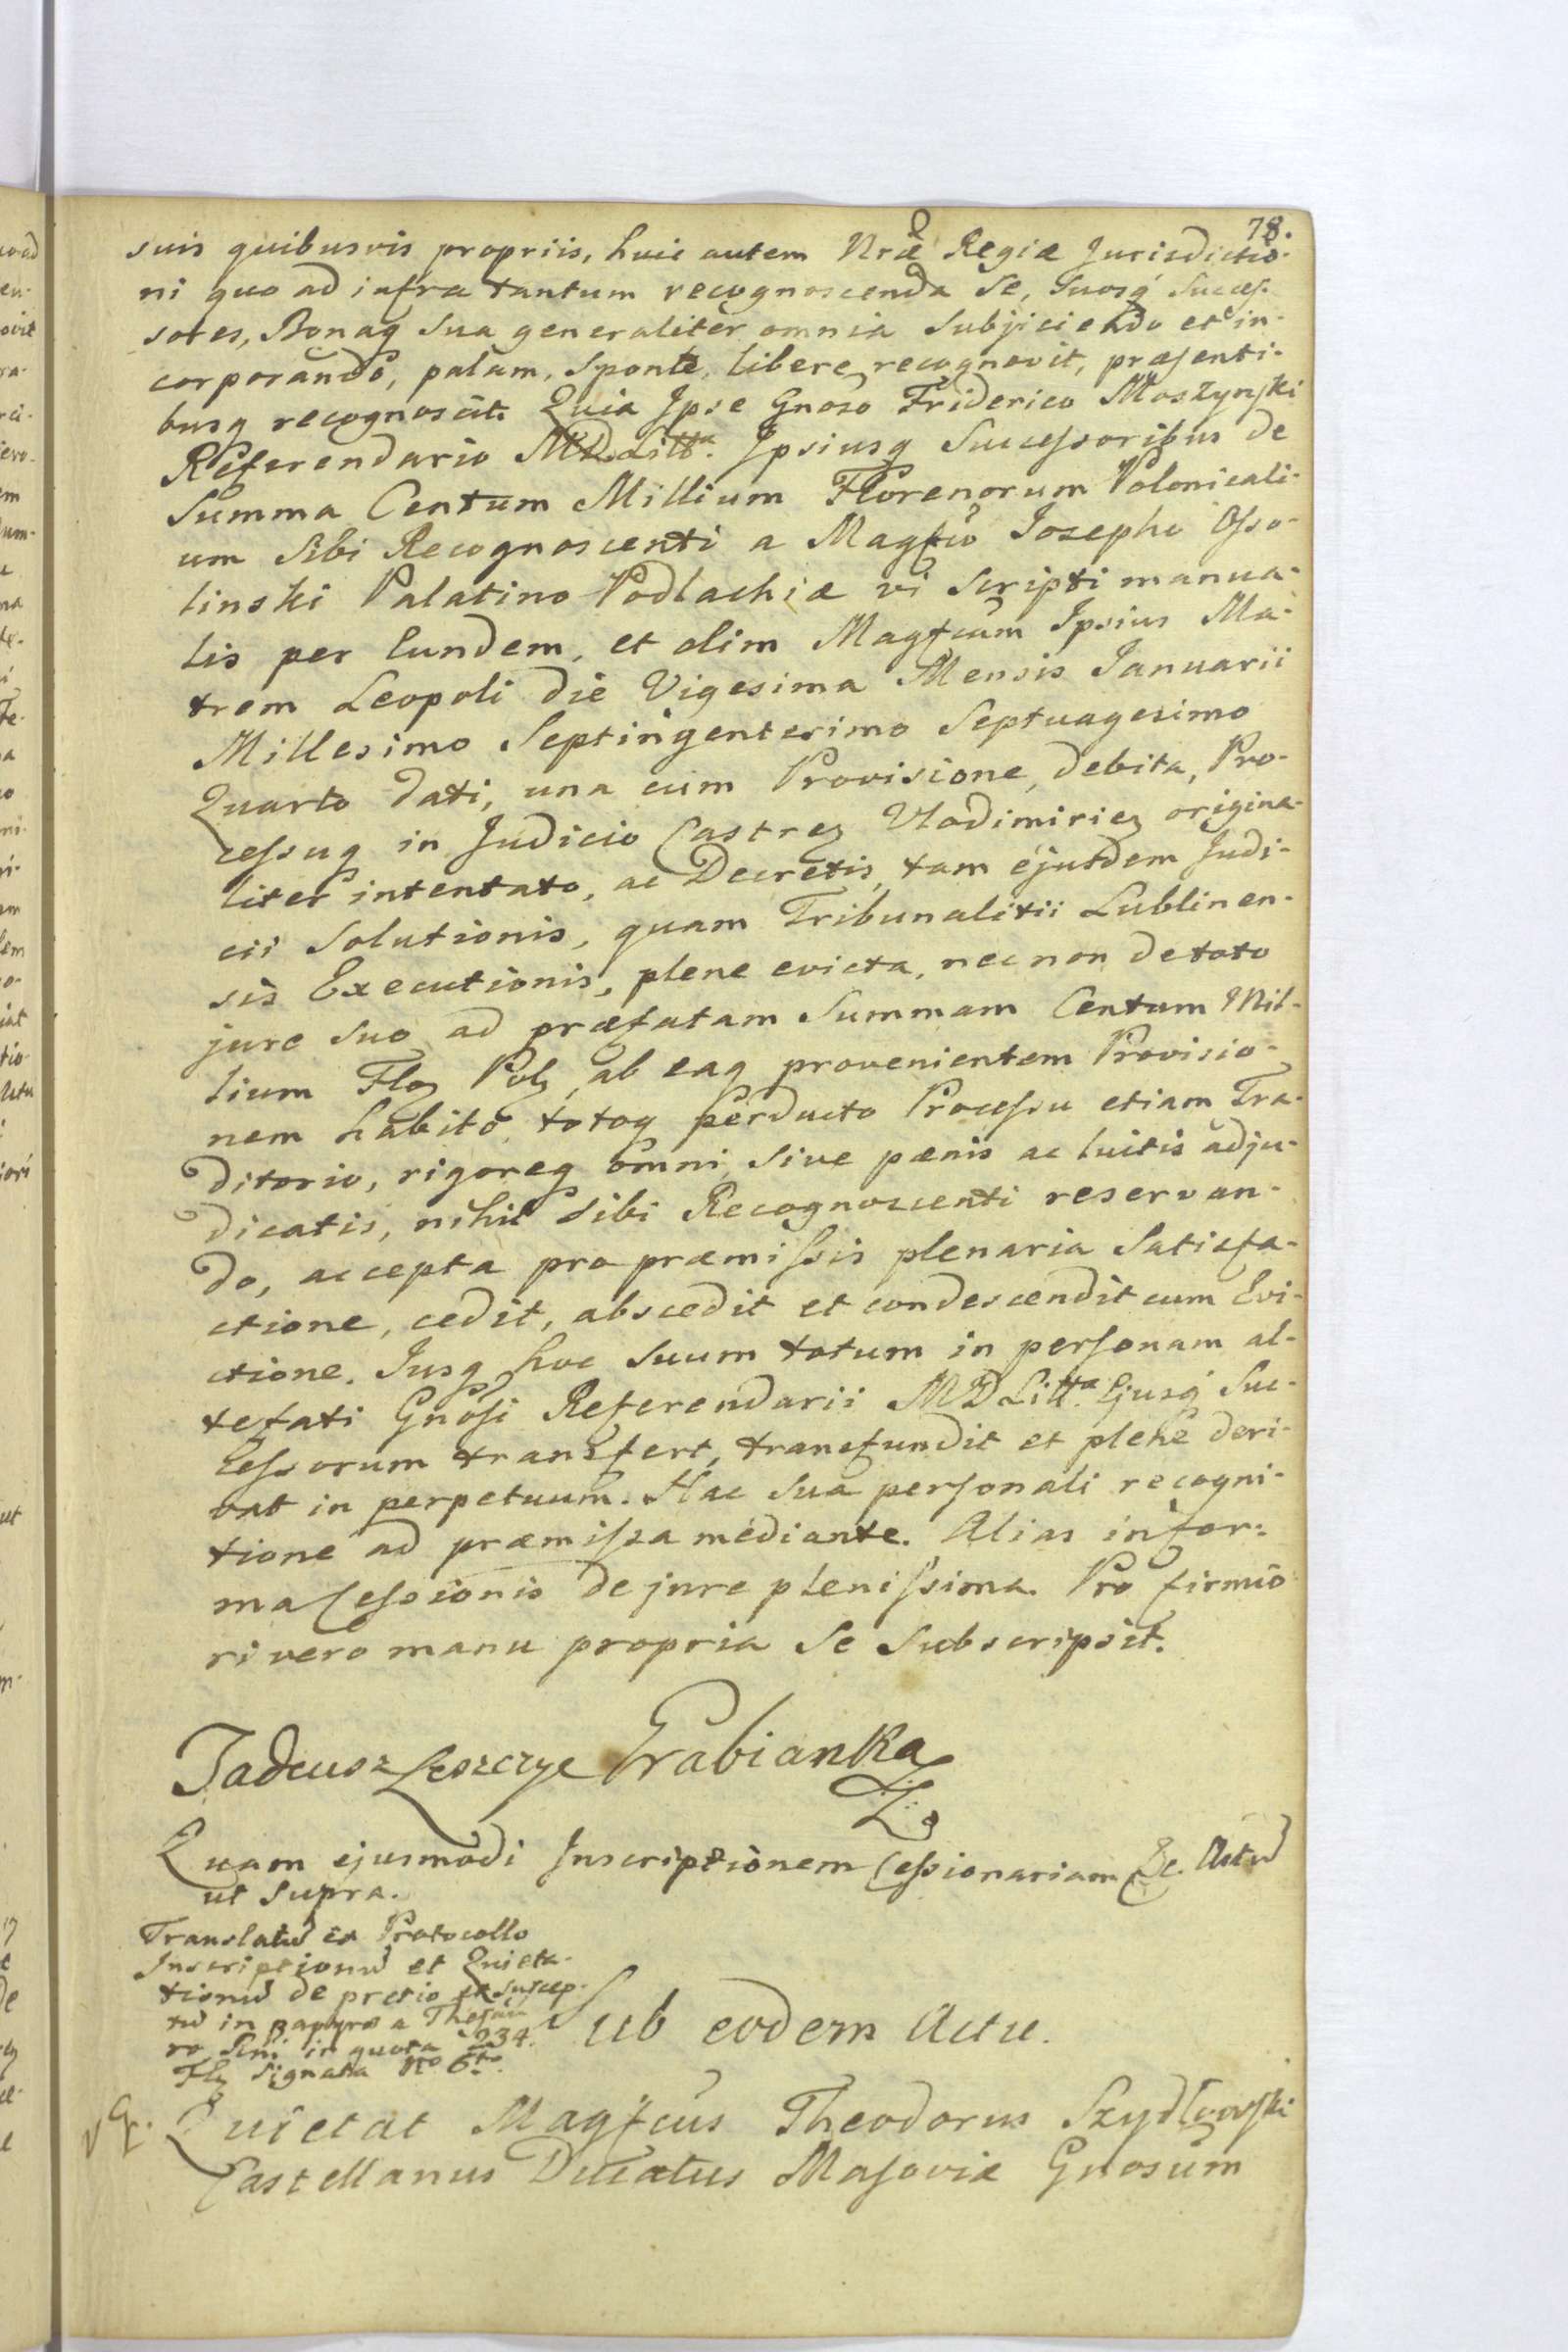 78.
suis quibusvis propriis, huic autem Nræ Regiæ Jurisdictio-
ni quo ad infra tantum recognoscenda Se, Suosq Succes-
sores, Bonaq Sua generaliter omnia Subjiciendo et in-
corporando, palam, Sponte, libere recognovit, præsenti-
busq recognoscit. Quia Ipse Gnoso Friderico Moszynski
Referendario MD.Litt. Ipsiusq Successoribus de
Summa Centum Millium Florenorum Polonicali-
um Sibi Recognoscenti a Magfco Josepho Osso-
linski Palatino Podlachiæ vi Scripti manua-
lis per Eundem, et olim Magfcam Ipsius Ma-
trem Leopoli die Vigesima Mensis Januarii
Millesimo Septingentesimo Septuagesimo
Quarto dati, una cum Provisione, debita, Pro-
cessuq in Judicio Castrez Vladimiriez origina-
liter intentato, ac Decretis, tam ejusdem Judi-
cii Solutionis, quam Tribunalitii Lublinen-
sis Executionis, plene evicta, nec non de toto
jure suo ad præfatam Summam Centum Mil-
lium Floz Polz, ab eaq provenientem Provisio-
nem habito, totoq perducto Processu etiam Tra-
ditorio, rigoreq omni, sive pænis ac luitis adju-
dicatis, nihil Sibi Recognoscenti reservan-
do, accepta pro præmissis plenaria Satisfa-
ctione, cedit, abscedit et condescendit cum Evi-
ctione. Jusq hoc Suum totum in personam al-
tefati Gnosi Referendarii MD Litt. Ejusq Suc-
cessorum transfert, transfundit et plene deri-
vat in perpetuum. Hac Sua personali recogni-
tione ad præmissa mediante. Alias in for-
ma Cessionis de jure plenissima. Pro firmio
ri vero manu propria Se Subscripsit.
Tadeusz Leszczyc Grabianka
Quam ejusmodi Inscriptionem Cessionariam &c. Actu
ut Supra.
Translatu ex Protocollo
Inscriptionu et Quieta-
tionu de pretio et suscep-
tu in papyro a Thesau
ro Sini in quota 234.
Flz Signata No 6to.
Sub eodem Actu.
Quietat Magfcus Theodorus Szydłowski
Castellanus Ducatus Masoviæ Gnosum